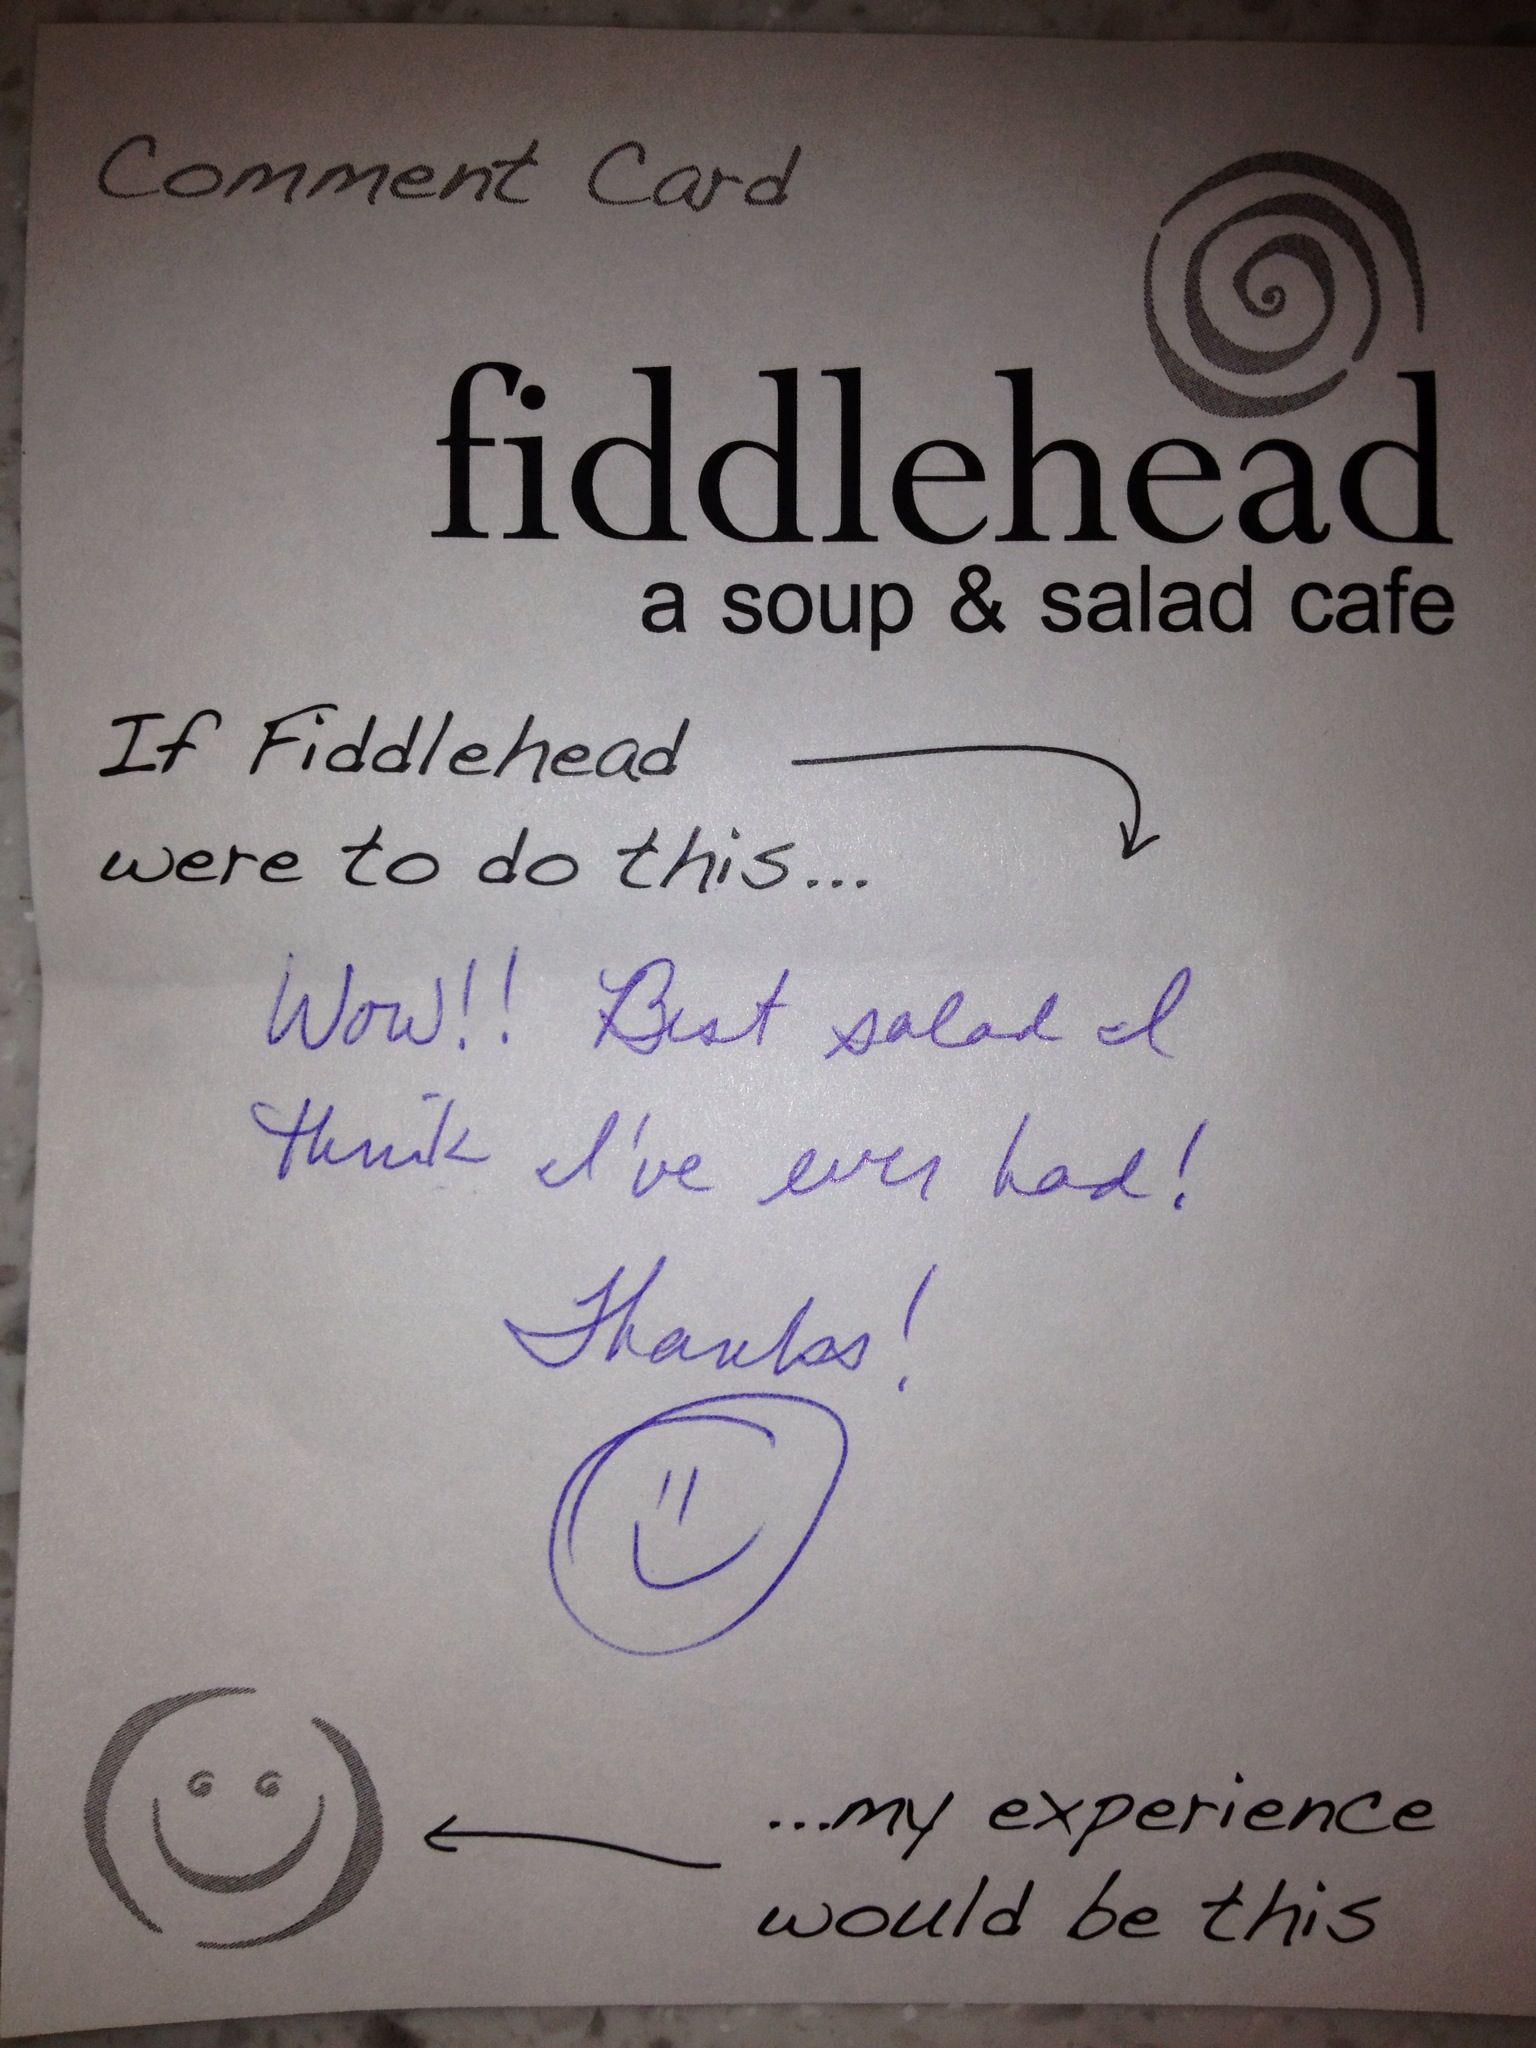 Comment Card
fiddlehead
a soup & salad cafe
If Fiddlehead
were to do this...
Wow!! Best salad I
think I've ever had!
Thanks!
...my experience
would be this